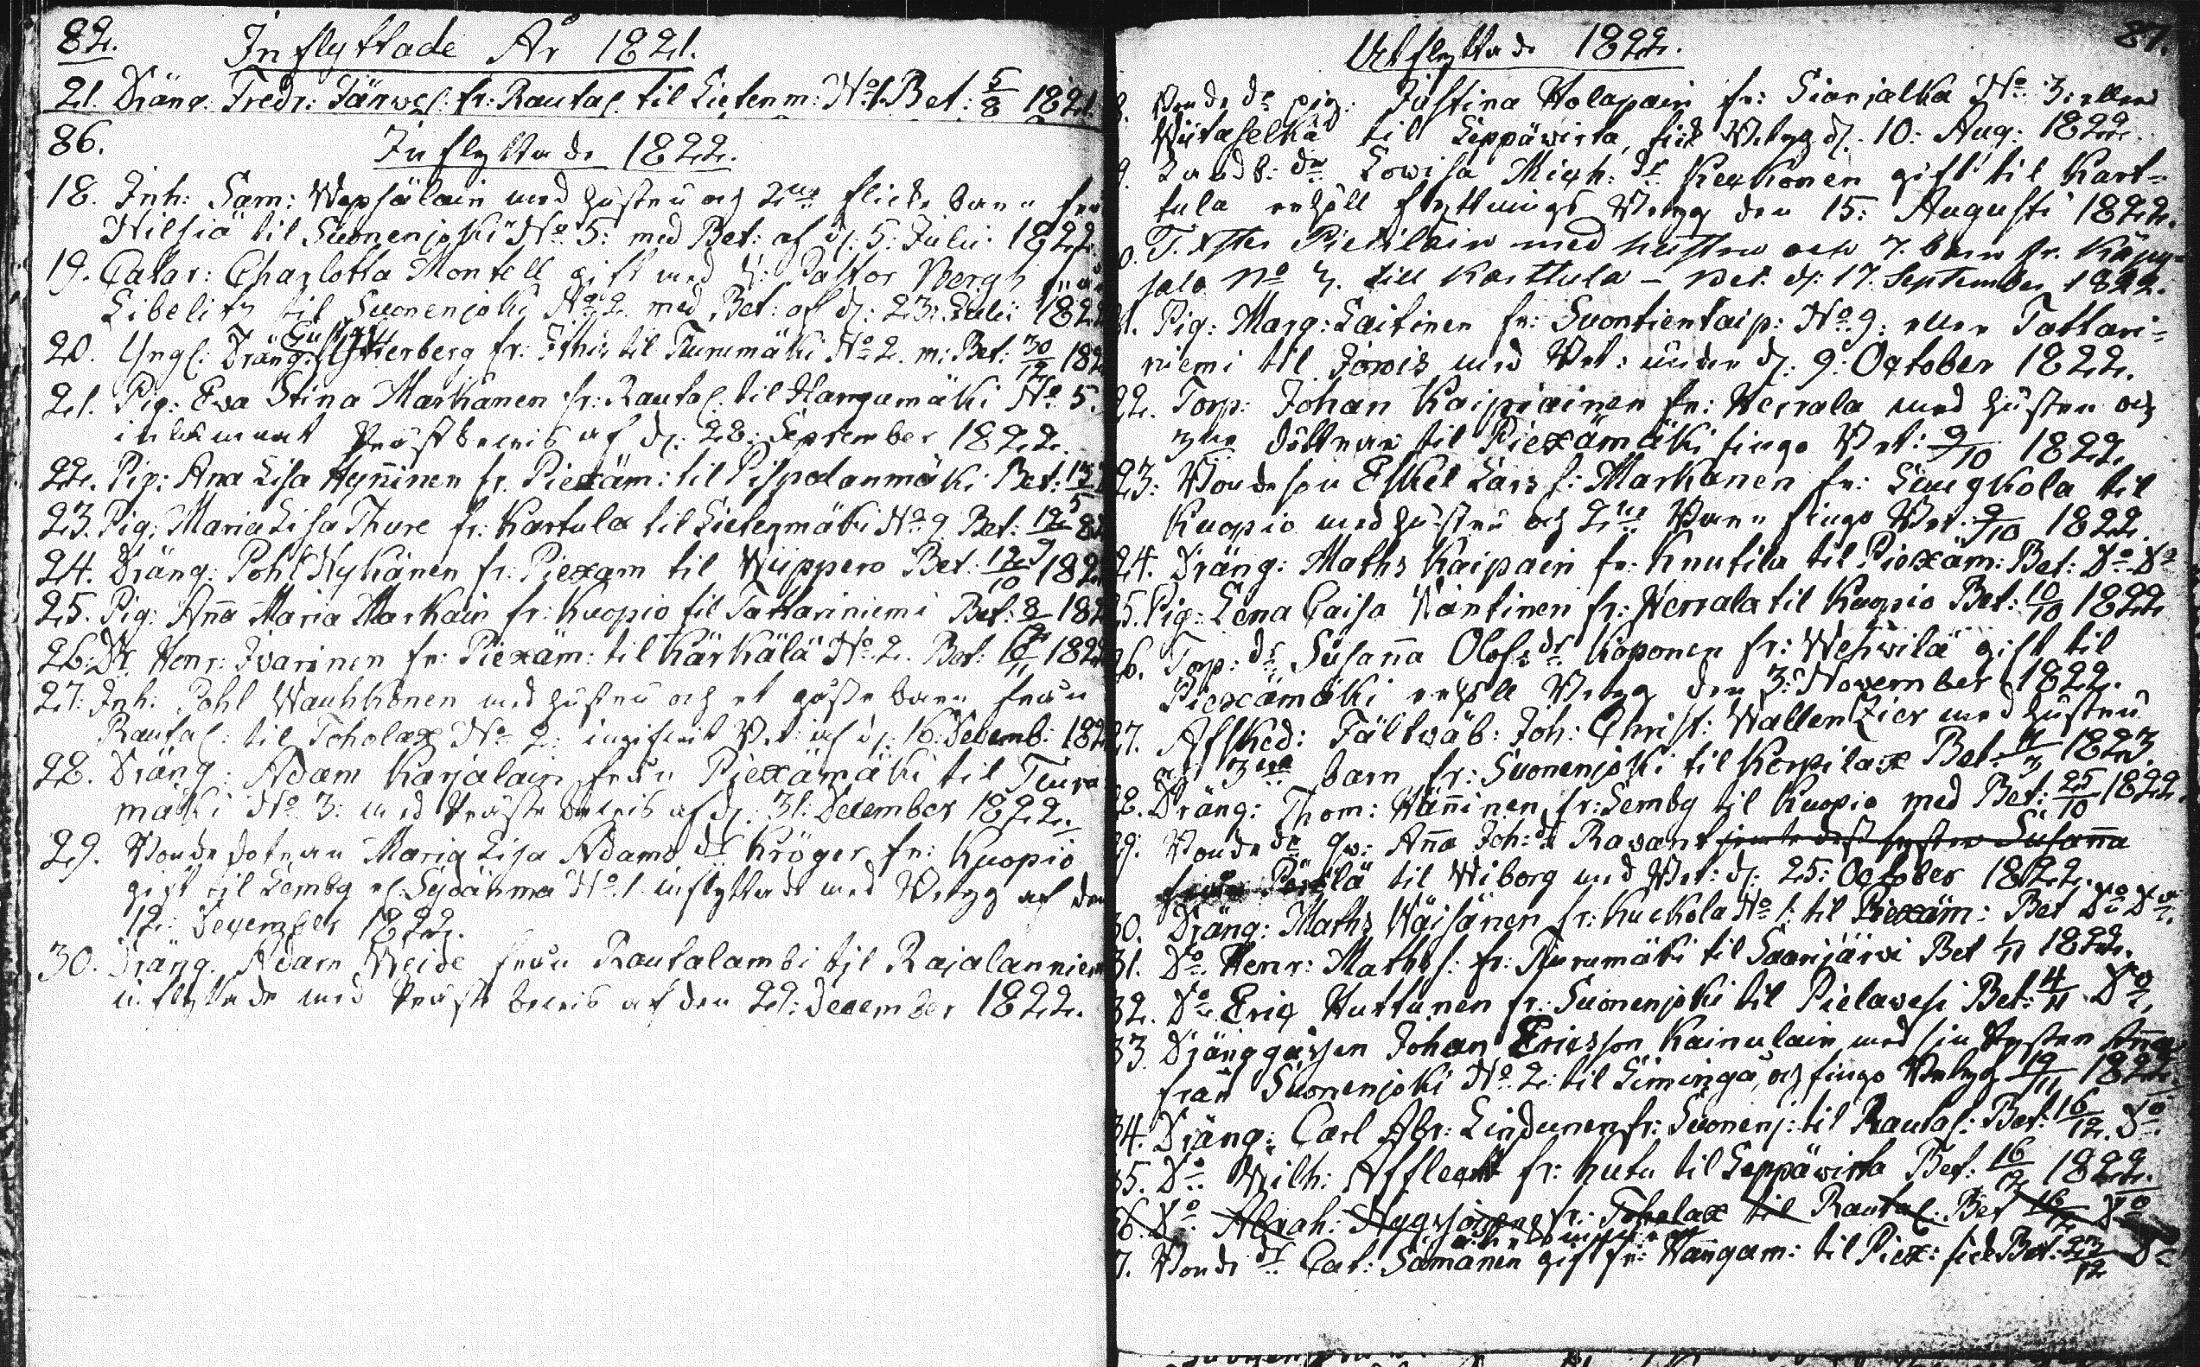 82. Inflyttade År 1821.
21. Dräng. Fredr: fr: Rautal. til Lietenm: No 1. Bet: 5/8 1821.
86. Inflyttade 1822.
18. Inh: Sam: Wepsäläin med hustru och 2ne flicke barn från
Nilsiä til Suonenjoki No 5: med Bet: af d: 5: Julii 1822.
19. Catar: Charlotta Montell gift med H: Pastor Bergh från
Libelitz til Suonenjoki No 2. med Bet: af d: 23: Julii 1822
20. Yngl: Dräng: Gustaf fr: til Tuurumäki No 2. m: Bet: 30/12 182
21. Pig: Eva Stina Markanen fr: Rautal. til Hangamäki No 5.
inlämnat Prästbevis af d: 28: September 1822.
22. Pig: Ana Lisa Hynninen fr. Piexäm: til Pispodanmäki Bet:
23. Pig: Maria Lisa Thure fr: Kartula til Lietenmäki No 9 Bet:
24. Dräng: Pohl Nykänen fr: Piexäm til Wiippero Bet: 12/10 182
25. Pig: Anna Maria Markain fr: Kuopio til Tattariniemi Bet: 8/ 182
26. Dr Henr: Ivarinen fr: Piexäm: til Kärkälä No 2. Bet: 1822
27. Inh: Pohl Wauhkonen med hustru och et gosse barn från
Rautal: til Toholax No 2: ingifvit Bet: af d: 16: Decemb: 182
28. Dräng: Adam Karjalain från Piexämäki til Tuuru
mäki No 3: med Präste bevis af d: 31: December 1822.
29. Bonde dotran Maria Lisa Adams dr Kröger fr: Kuopio
gift til Lemby el. Sydänmä No 1. inflyttade med Betyg af den
12: December 1822.
30. Dräng. Adam Weide från Rautalambi til Rajalanniem
inflyttade med Präste bevis af den 29: December 1822.
Utflyttade 1822. 87.
Bonde dr pig: Justina Holapain fr: No 3: eller
Wiitaselkä til Leppäwirta, fick Betyg d. 10: Aug: 1822.
dr Lowisa Mich: dr Kerkonen gift til Kart-
tula erhöll flyttnings Betyg den 15: Augusti 1822.
Pietiläin med hustru och 7. barn fr. Käpy-
jala No 3. till Karttula - Bet: d: 17. September 1822.
21. Pig: Marg: Laitinen fr: Suontientaip: No 9: eller Tattari-
niemi til Jorois med Bet: under d: 9: October 1822.
22. Torp: Johan Kaipiainen fr: Herrala med hustru och
3ne döttrar til Piexämäki fingo Bet: 9/10 1822.
23: Bondeson Eskel Lars s: Markanen fr: til
Kuopio med hustru och 2ne Barn fingo Bet: 9/10 1822.
24. Dräng: Maths Kaipain fr: Knutila til Piexäm: Bet: Do Do
25. Pig: Lena Caisa Wäntinen fr: Herrala til Kuopio Bet: 10/10 1822
26. Torp: dr Susanna Olofs dr Koponen fr: Wehwilä gift til
Piexämäki erhöll Betyg den 3: November 1822.
27. Afsked: Fältwäb: Joh: Christ: Wallenzier med hustru
och 3ne barn fr: Suonenjoki til Korpilax Bet: 1823.
28. Dräng: Thom: Hänninen fr: Lemby til Kuopio med Bet: 25/10 1822.
29. Bonde dr qv: Anna Joh: dr Ravant jemte dess syster Susanna
från Pörölä til Wiborg med Bet: d: 25: October 1822.
30. Dräng: Maths Wäisänen fr: Kuckola No 1: til Piexäm: Bet Do Do
31. Do Henr: Mathss: fr: Tuurumäki til Saarijärvi Bet 1822.
32. Do Eric Huttunen fr: Suonenjoki til Pielavesi Bet: 4/11 Do
33. Dränggåssen Johan Ericsson Kainulain med sin syster Anna
från Suonenjoki No 2: til Liminga, och fingo Betyg 19/11 1822.
34. Dräng: Carl Abr: Lindunen fr: Suonenj: til Rautal: Bet: 16/12. Do
35. Do Wilh: Affleckt fr: Kutu til Leppäwirta Bet: 16/12 1822.
36. Do Abrah: fr: Toholax til Rautal: Bet 16/12 Do
7. Bonde dr Cat: Sämänen gift fr: Hangam: til Piex: fick Bet: 23/12 Do